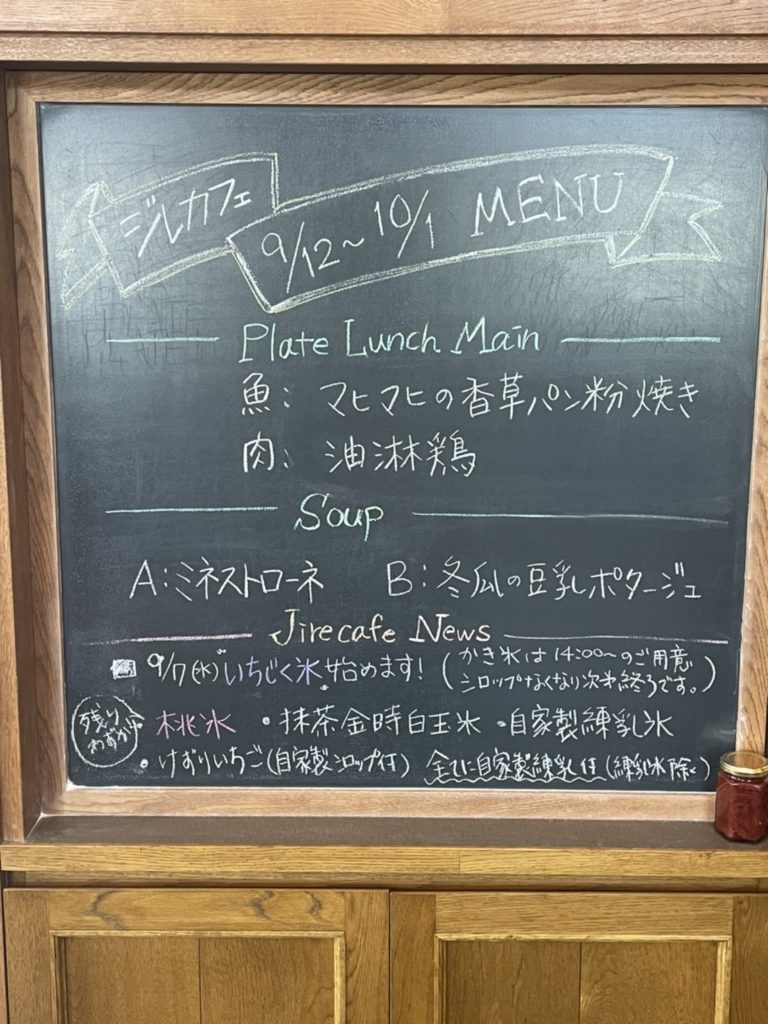 ジルカフェ
9/12〜10/1 MENU
Plate Lunch Main
魚: マヒマヒの香草パン粉焼き
肉: 油淋鶏
Soup
A:ミネストローネ B:冬瓜の豆乳ポタージュ
Jirecafe News
9/7(水)"いちじく氷"始めます! (かき氷は14:00〜のご用意
シロップなくなり次第終了です。)
残り
わずか
・桃氷 ・抹茶金時白玉氷 ・自家製練乳氷
・けずりいちご(自家製シロップ付) 全てに自家製練乳付(練乳氷除く)